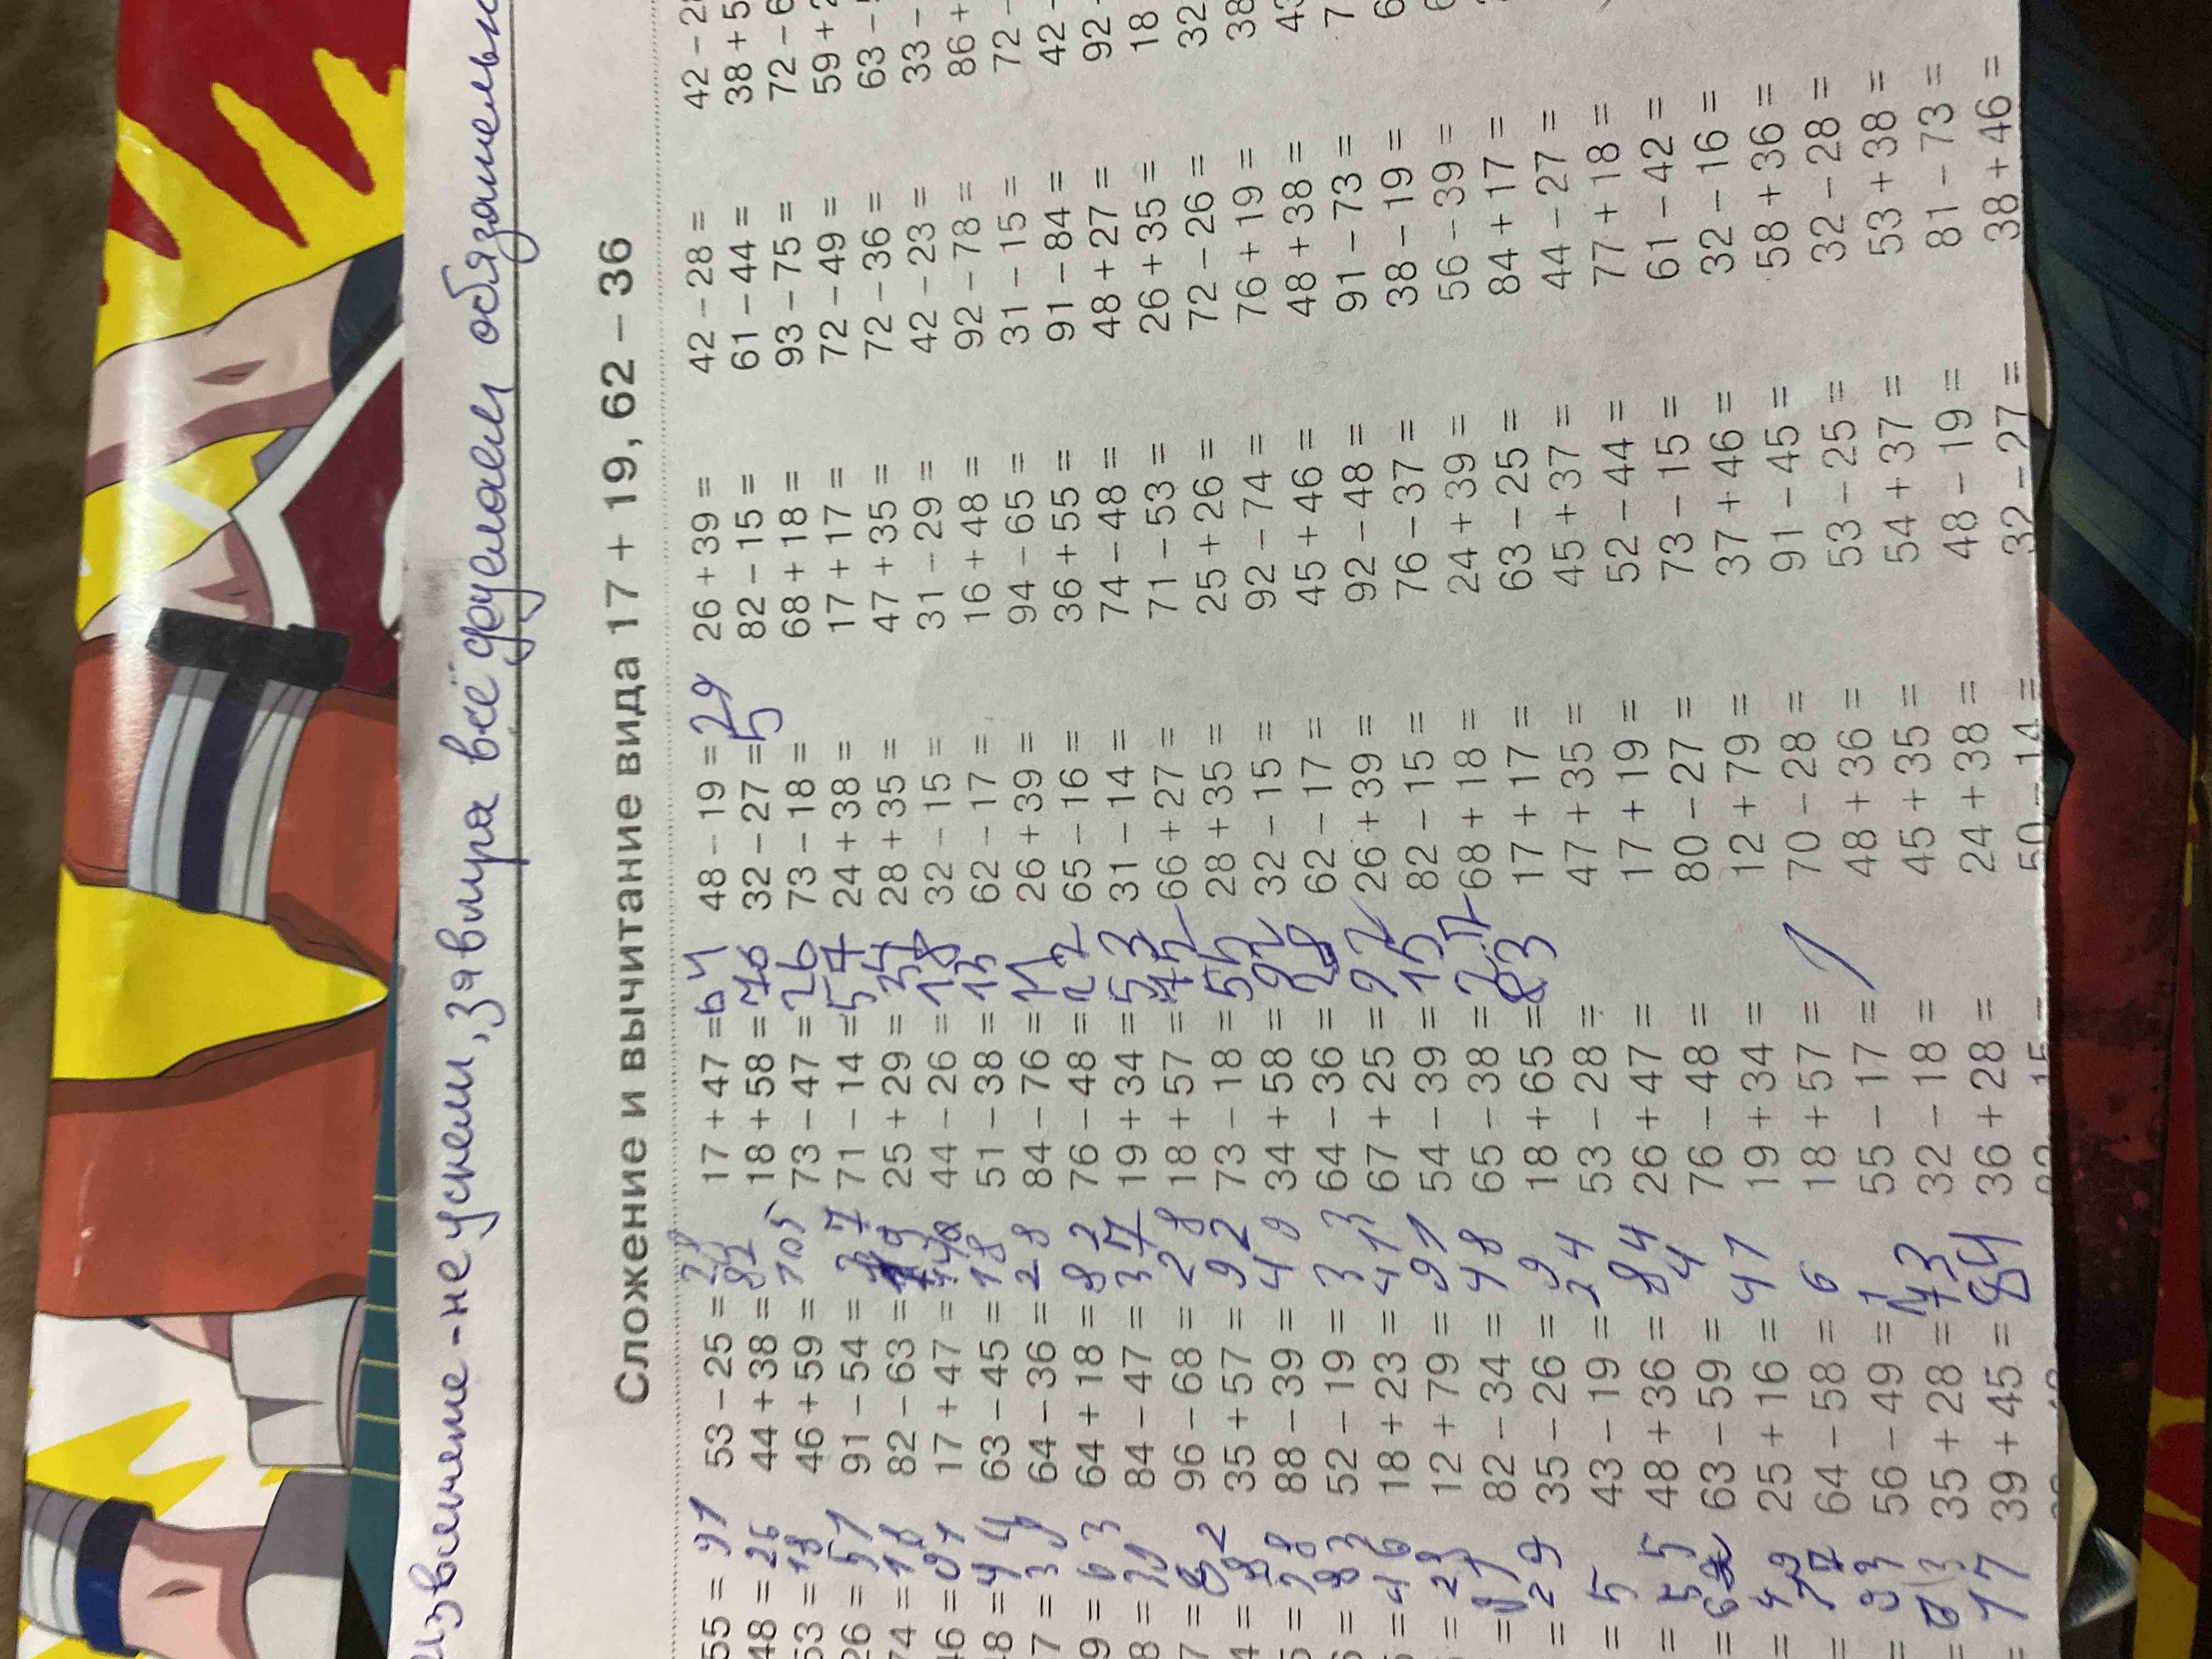 извените - не успели, завтра всё доделаем обязательн
Сложение и вычитание вида 17 + 19, 62 − 36
55 = 91 53 − 25 = 28 17 + 47 = 64 48 − 19 = 29 26 + 39 = 42 − 28 = 42 − 2
48 = 26 44 + 38 = 82 18 + 58 = 76 32 − 27 = 5 82 − 15 = 61 − 44 = 38 + 5
= 18 46 + 59 = 105 73 − 47 = 26 73 − 18 = 68 + 18 = 93 − 75 = 72 − 6
26 = 57 91 − 54 = 37 71 − 14 = 57 24 + 38 = 17 + 17 = 72 − 49 = 59 + 2
74 = 18 82 − 63 = 19 25 + 29 = 54 28 + 35 = 47 + 35 = 72 − 36 = 63 −
46 = 17 + 47 = 44 − 26 = 18 32 − 15 = 31 − 29 = 42 − 23 = 33 −
8 = 44 63 − 45 = 18 51 − 38 = 13 62 − 17 = 16 + 48 = 92 − 78 = 86 +
7 = 64 − 36 = 28 84 − 76 = 26 + 39 = 94 − 65 = 31 − 15 = 72 −
9 = 63 64 + 18 = 82 76 − 48 = 65 − 16 = 36 + 55 = 91 − 84 = 42 −
8 = 84 − 47 = 37 19 + 34 = 53 31 − 14 = 74 − 48 = 48 + 27 = 92 −
7 = 82 96 − 68 = 28 18 + 57 = 66 + 27 = 71 − 53 = 26 + 35 = 18
4 = 35 + 57 = 92 73 − 18 = 55 28 + 35 = 25 + 26 = 72 − 26 = 32
5 = 78 88 − 39 = 49 34 + 58 = 92 32 − 15 = 92 − 74 = 76 + 19 = 38
= 83 52 − 19 = 33 64 − 36 = 28 62 − 17 = 45 + 46 = 48 + 38 = 43
= 46 18 + 23 = 41 67 + 25 = 92 26 + 39 = 92 − 48 = 91 − 73 = 7
= 29 12 + 79 = 91 54 − 39 = 15 82 − 15 = 76 − 37 = 38 − 19 = 6
= 82 − 34 = 48 65 − 38 = 27 68 + 18 = 24 + 39 = 56 − 39 =
= 29 35 − 26 = 9 18 + 65 = 83 17 + 17 = 63 − 25 = 84 + 17 =
= 5 43 − 19 = 24 53 − 28 = 47 + 35 = 45 + 37 = 44 − 27 =
= 55 48 + 36 = 84 26 + 47 = 17 + 19 = 52 − 44 = 77 + 18 =
= 63 − 59 = 4 76 − 48 = 80 − 27 = 73 − 15 = 61 − 42 =
= 49 25 + 16 = 41 19 + 34 = 12 + 79 = 37 + 46 = 32 − 16 =
= 64 − 58 = 6 18 + 57 = 70 − 28 = 91 − 45 = 58 + 36 =
= 93 56 − 49 = 55 − 17 = 48 + 36 = 53 − 25 = 32 − 28 =
= 35 + 28 = 43 32 − 18 = 45 + 35 = 54 + 37 = 53 + 38 =
= 17 39 + 45 = 84 36 + 28 = 24 + 38 = 48 − 19 = 81 − 73 =
50 − 14 = 32 − 27 = 38 + 46 =